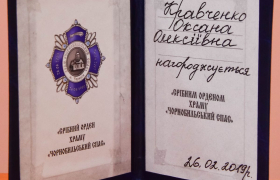 "СРІБНИЙ ОРДЕН
ХРАМУ
"ЧОРНОБИЛЬСЬКИЙ СПАС"
Кравченко
Оксана
Олексіївна
нагороджується
"СРІБНИМ ОРДЕНОМ
ХРАМУ
"ЧОРНОБИЛЬСЬКИЙ СПАС"
26.02.2019р.